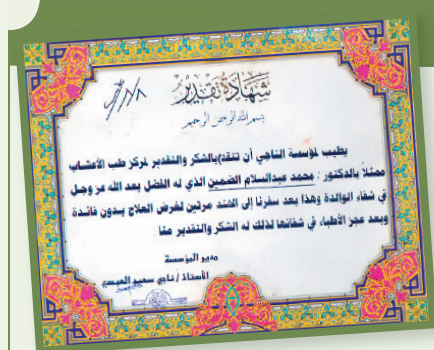 شهادة تقدير
بسم الله الرحمن الرحيم
يطيب لمؤسسة الناجي أن تتقدم بالشكر والتقدير لمركز طب الأعشاب
ممثلاً بالدكتور : محمد عبدالسلام الضمين الذي له الفضل بعد الله عز وجل
في شفاء الوالدة وهذا بعد سفرنا إلى الهند مرتين لغرض العلاج بدون فائدة
وبعد عجز الأطباء في شفائها لذلك له الشكر والتقدير منا
مدير المؤسسة
الأستاذ / ناجي سعيد